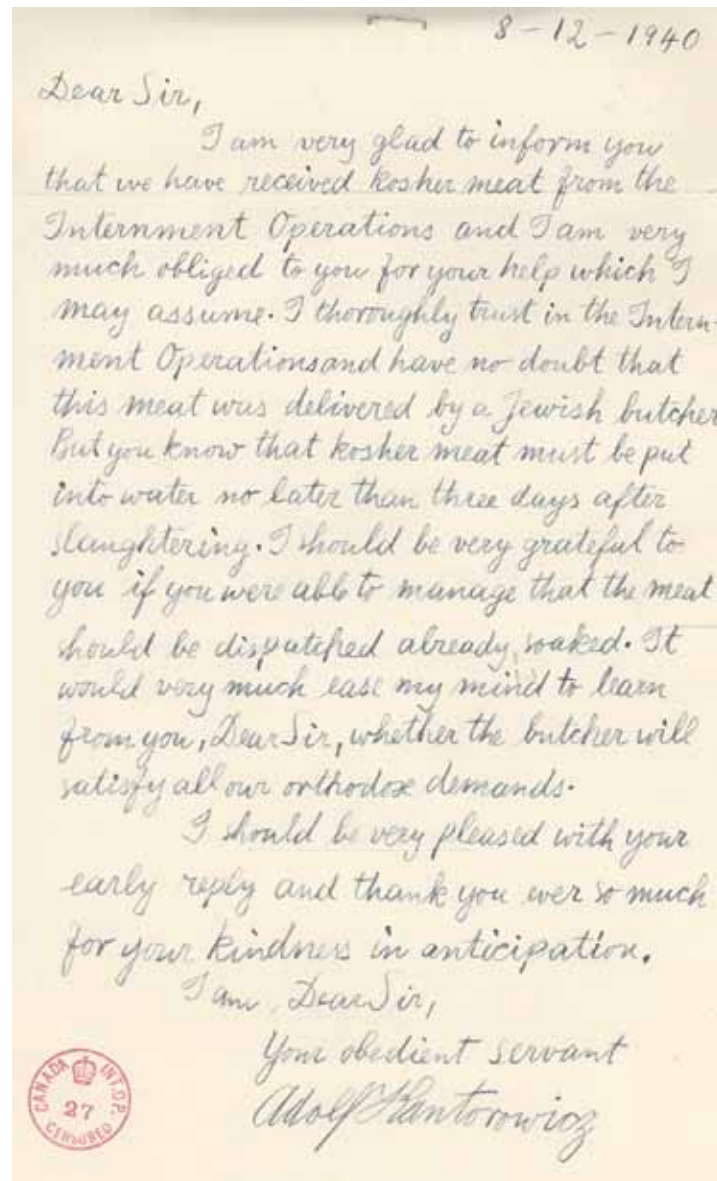 8-12-1940
Dear Sir,
I am very glad to inform you
that we have received kosher meat from the
Internment Operations and I am very
much obliged to you for your help which I
may assume. I thoroughly trust in the Intern-
ment Operations and have no doubt that
this meat was delivered by a Jewish butcher
But you know that kosher meat must be put
into water no later than three days after
slaughtering. I should be very grateful to
you if you were able to manage that the meat
should be dispatched already soaked. It
would very much ease my mind to learn
from you, Dear Sir, whether the butcher will
satisfy all our orthodox demands.
I should be very pleased with your
early reply and thank you ever so much
for your kindness in anticipation.
I am, Dear Sir,
Your obedient servant
Adolf Kantorowicz
CANADA INT. OP.
27
CENSORED